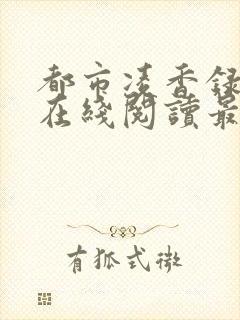 都市凌香録
在綫閱讀最
有狐式微